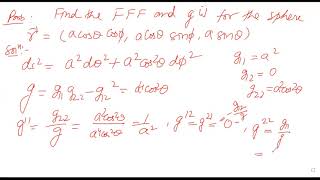 Prob: Find the FFF and g^{ij} for the sphere
r⃗ = (a cosθ cosφ, a cosθ sinφ, a sinθ)
Sol^n:-
ds² = a²dθ² + a²cos²θ dφ²  g₁₁ = a²
g₁₂ = 0
g = g₁₁g₂₂ - g₁₂² = a⁴cos²θ  g₂₂ = a²cos²θ
g¹¹ = g₂₂/g = a²cos²θ/a⁴cos²θ = 1/a², g¹² = g²¹ = 0, g²² = g₁₁/g
=